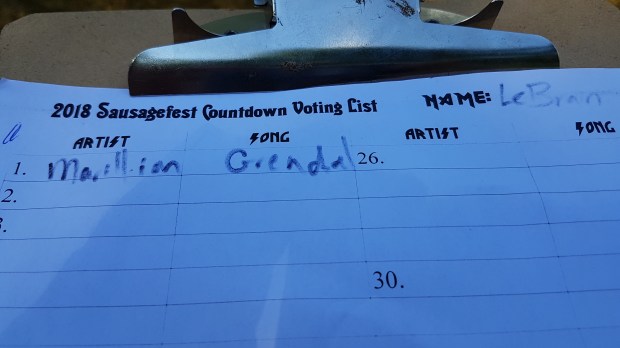 2018 Sausagefest Countdown Voting List NAME: LeBrain
ARTIST SONG ARTIST SONG
1. Marillion Grendel 26.
2.
3.
30.